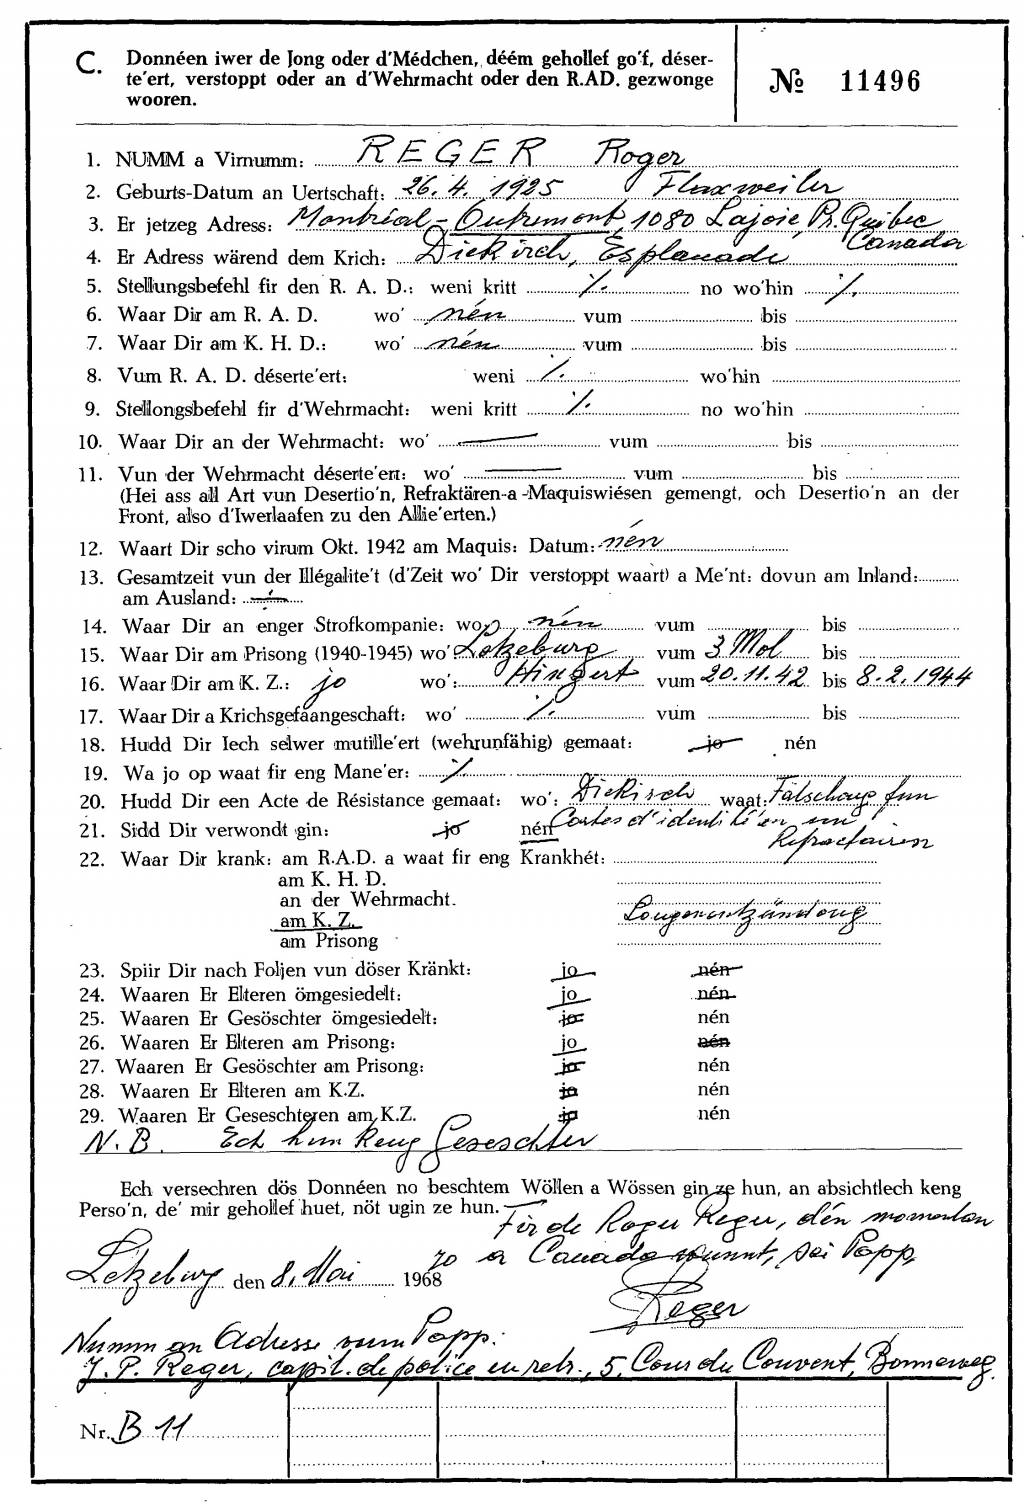 C. Donnéen iwer de Jong oder d'Médchen, déém gehollef go'f, déser-
te'ert, verstoppt oder an d'Wehrmacht oder den R.AD. gezwonge
wooren.
№ 11496
1. NUMM a Virnumm: REGER Roger
2. Geburts-Datum an Uertschaft: 26. 4. 1925 Flaxweiler
3. Er jetzeg Adress: Montréal-Outremont, 1080 Lajoie, Pr. Québec
Canada
4. Er Adress wärend dem Krich: Diekirch, Esplanade
5. Stellungsbefehl fir den R. A. D.: weni kritt ./. no wo'hin ./.
6. Waar Dir am R. A. D. wo' nén vum bis
7. Waar Dir am K. H. D.: wo' nén vum bis
8. Vum R. A. D. déserte'ert: weni ./. wo'hin
9. Stellongsbefehl fir d'Wehrmacht: weni kritt ./. no wo'hin
10. Waar Dir an der Wehrmacht: wo' — vum bis
11. Vun der Wehrmacht déserte'ert: wo' — vum bis
(Hei ass all Art vun Desertio'n, Refraktären-a-Maquiswiésen gemengt, och Desertio'n an der
Front, also d'Iwerlaafen zu den Allie'erten.)
12. Waart Dir scho virum Okt. 1942 am Maquis: Datum: nén
13. Gesamtzeit vun der Illégalite't (d'Zeit wo' Dir verstoppt waart) a Me'nt: dovun am Inland:
am Ausland: ./.
14. Waar Dir an enger Strofkompanie: wo nén vum bis
15. Waar Dir am Prisong (1940-1945) wo' Letzeburg vum 3 Mol bis
16. Waar Dir am K. Z.: jo wo': Hinzert vum 20.11.42 bis 8.2.1944
17. Waar Dir a Krichsgefaangeschaft: wo' ./. vum bis
18. Hudd Dir Iech selwer mutille'ert (wehrunfähig) gemaat: jo nén
19. Wa jo op waat fir eng Mane'er: ./.
20. Hudd Dir een Acte de Résistance gemaat: wo': Diekirch waat: Fälschong fun
21. Sidd Dir verwondt gin: jo nén Cartes d'identité'en un
Refractairen
22. Waar Dir krank: am R.A.D. a waat fir eng Krankhét:
am K. H. D.
an der Wehrmacht.
am K. Z. Longenentzündong
am Prisong
23. Spiir Dir nach Foljen vun döser Kränkt: jo nén
24. Waaren Er Elteren ömgesiedelt: jo nén
25. Waaren Er Gesöschter ömgesiedelt: jo nén
26. Waaren Er Elteren am Prisong: jo nén
27. Waaren Er Gesöschter am Prisong: jo nén
28. Waaren Er Elteren am K.Z. jo nén
29. Waaren Er Geseschteren am K.Z. jo nén
N.B. Ech hun keng Geseschter
Ech versechren dös Donnéen no beschtem Wöllen a Wössen gin ze hun, an absichtlech keng
Perso'n, de' mir gehollef huet, nöt ugin ze hun.
Fir de Roger Reger, dén momentan
a Canada wunnt, sei Papp,
Letzeburg den 8. Mai 1968 70
Reger
Numm an Adresse vum Papp:
J. P. Reger, capit. de police en retr., 5, Cour du Couvent, Bonneweg.
Nr. B 11